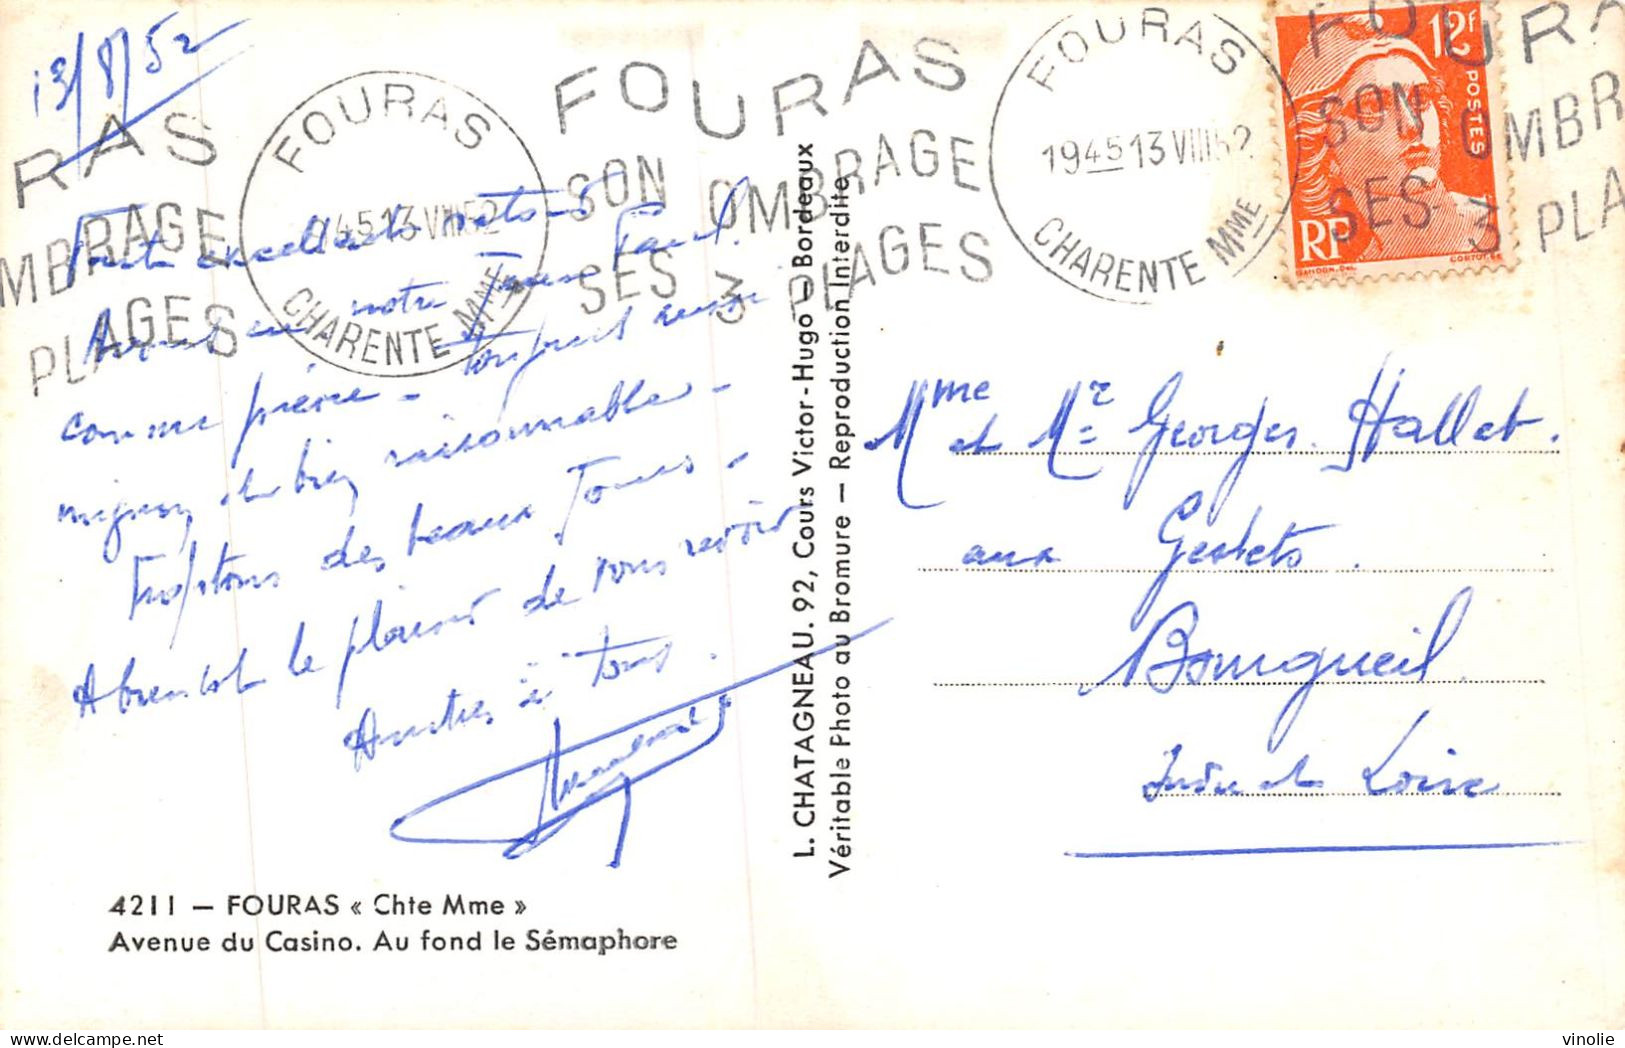 13/8/52
RAS
MBRAGE
PLAGES
FOURAS
1945 13 VIII 52
CHARENTE MME
FOURAS
SON OMBRAGE
SES 3 PLAGES
FOURAS
1945 13 VIII 52
CHARENTE MME
FOURA
SON OMBR
SES 3 PLA
12F
POSTES
RF
GANDON. DEL.
CORTOT. SC
notre Jean Paul.
toujours aussi
mignon et bien raisonnable -
des beaux jours -
A bientôt le plaisir de vous revoir
à tous.
L. CHATAGNEAU. 92, Cours Victor-Hugo — Bordeaux
Véritable Photo au Bromure — Reproduction Interdite
Mme et Mr Georges Hallet.
aux Gestets.
Bourgueil.
Indre et Loire
4211 — FOURAS « Chte Mme »
Avenue du Casino. Au fond le Sémaphore
vinolie